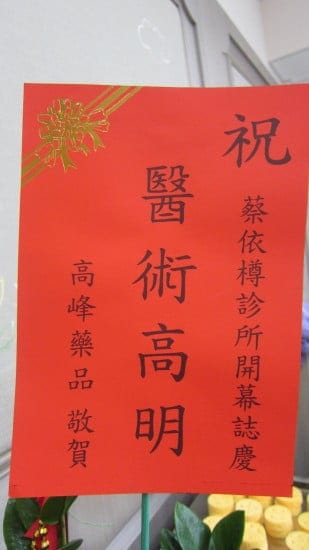 祝
蔡依樽診所開幕誌慶
醫術高明
高峰藥品 敬賀